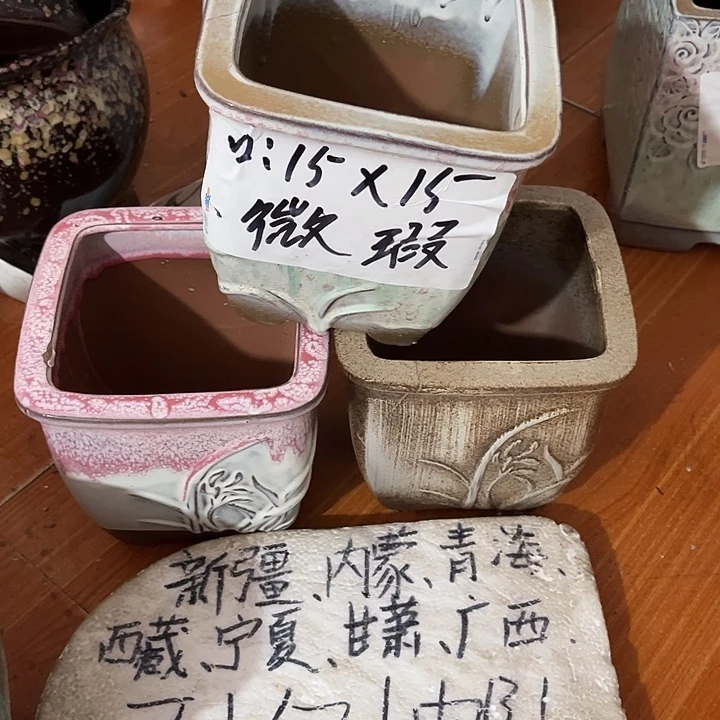 口:15×15
微瑕
新疆、内蒙、青海、
西藏、宁夏、甘肃、广西.